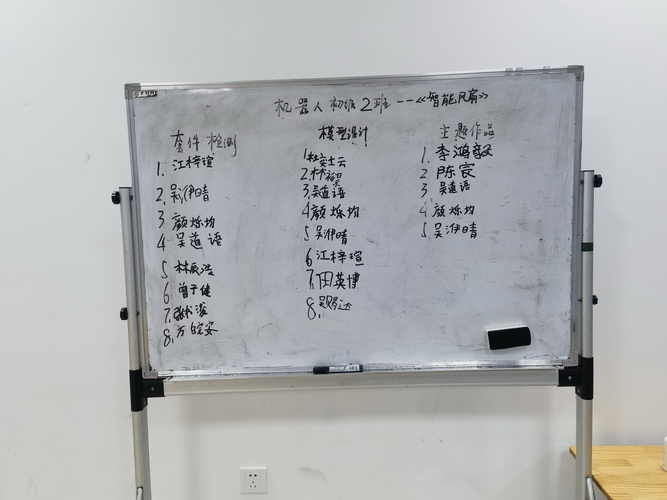 机器人初级2班--《智能风扇》
套件检测
1.江梓瑄
2.吴洢晴
3颜烁均
4吴道语
5林辰浩
6曾子健
7.张书浚
8.方皖安
模型设计
2林
3.吴道语
4颜烁均
5吴洢晴
6江梓瑄
7.田英博
8.吴
主题作品
1.李鸿毅
2陈宸
3吴道语
4颜烁均
5.吴洢晴